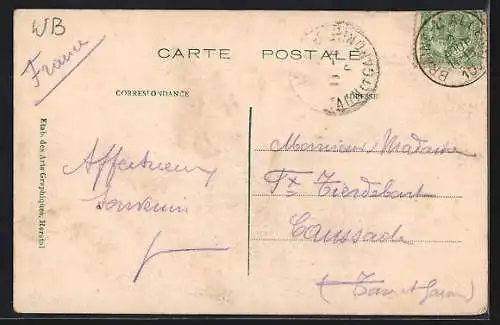 WB
France
CARTE POSTALE
CORRESPONDANCE
ADRESSE
Affectueux
souvenir
Monsieur Madame
Caussade
(Tarn et Garonne)
Etab. des Arts Graphiques, Herstal